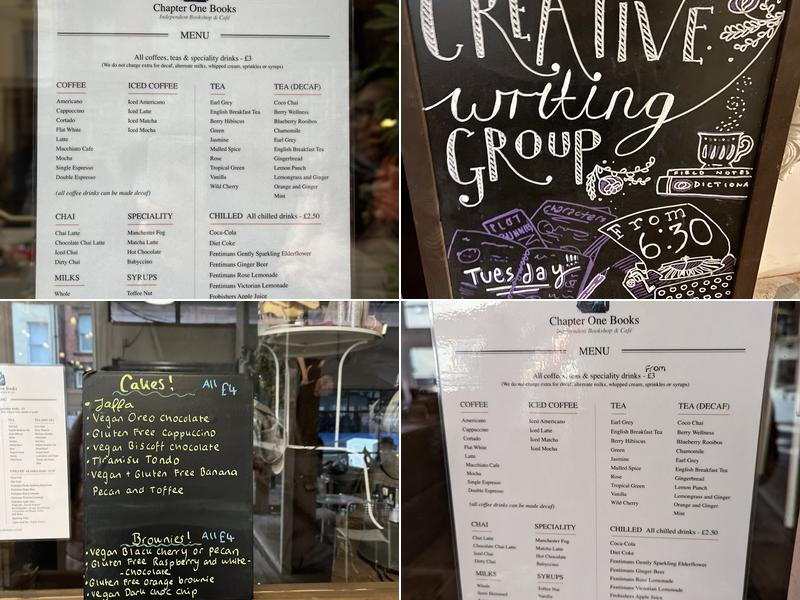 Chapter One Books
Independent Bookshop & Café
MENU
All coffees, teas & speciality drinks - £3
(We do not charge extra for decaf, alternate milks, whipped cream, sprinkles or syrups)
COFFEE
Americano
Cappuccino
Cortado
Flat White
Latte
Macchiato Cafe
Mocha
Single Espresso
Double Espresso
(all coffee drinks can be made decaf)
ICED COFFEE
Iced Americano
Iced Latte
Iced Matcha
Iced Mocha
TEA
Earl Grey
English Breakfast Tea
Berry Hibiscus
Green
Jasmine
Mulled Spice
Rose
Tropical Green
Vanilla
Wild Cherry
TEA (DECAF)
Coco Chai
Berry Wellness
Blueberry Rooibos
Chamomile
Earl Grey
English Breakfast Tea
Gingerbread
Lemon Punch
Lemongrass and Ginger
Orange and Ginger
Mint
CHAI
Chai Latte
Chocolate Chai Latte
Iced Chai
Dirty Chai
SPECIALITY
Manchester Fog
Matcha Latte
Hot Chocolate
Babyccino
CHILLED All chilled drinks - £2.50
Coca-Cola
Diet Coke
Fentimans Gently Sparkling Elderflower
Fentimans Ginger Beer
Fentimans Rose Lemonade
Fentimans Victorian Lemonade
Frobishers Apple Juice
MILKS
Whole
SYRUPS
Toffee Nut
CREATIVE
writing
GROUP
FIELD NOTES
DICTIONA
PLOT
BUNNIES
characters
From
6:30
Tuesday!!!
Cakes! All £4
• Jaffa
• Vegan Oreo chocolate
• Gluten Free Cappuccino
• Vegan Biscoff chocolate
• Tiramisu Tondo
• Vegan + Gluten Free Banana
Pecan and Toffee
Brownies! All £4
• Vegan Black cherry or pecan
• Gluten Free Raspberry and white-
-chocolate
• Gluten free orange brownie
• Vegan Dark choc chip
Chapter One Books
Independent Bookshop & Café
MENU
From
All coffees, teas & speciality drinks - £3
(We do not charge extra for decaf, alternate milks, whipped cream, sprinkles or syrups)
COFFEE
Americano
Cappuccino
Cortado
Flat White
Latte
Macchiato Cafe
Mocha
Single Espresso
Double Espresso
(all coffee drinks can be made decaf)
ICED COFFEE
Iced Americano
Iced Latte
Iced Matcha
Iced Mocha
TEA
Earl Grey
English Breakfast Tea
Berry Hibiscus
Green
Jasmine
Mulled Spice
Rose
Tropical Green
Vanilla
Wild Cherry
TEA (DECAF)
Coco Chai
Berry Wellness
Blueberry Rooibos
Chamomile
Earl Grey
English Breakfast Tea
Gingerbread
Lemon Punch
Lemongrass and Ginger
Orange and Ginger
Mint
CHAI
Chai Latte
Chocolate Chai Latte
Iced Chai
Dirty Chai
SPECIALITY
Manchester Fog
Matcha Latte
Hot Chocolate
Babyccino
CHILLED All chilled drinks - £2.50
Coca-Cola
Diet Coke
Fentimans Gently Sparkling Elderflower
Fentimans Ginger Beer
Fentimans Rose Lemonade
Fentimans Victorian Lemonade
Frobishers Apple Juice
MILKS
Whole
Semi Skimmed
SYRUPS
Toffee Nut
Vanilla